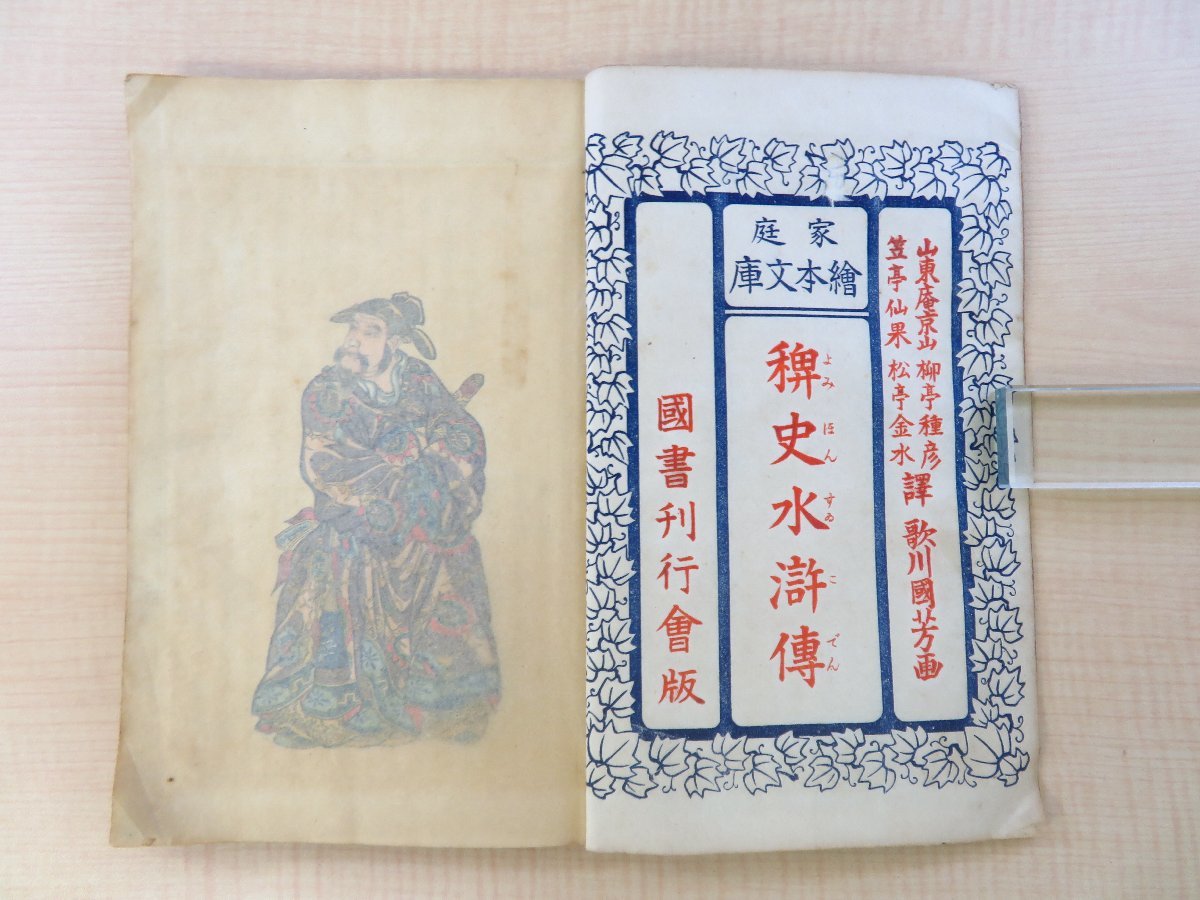 山東庵京山 柳亭種彦
笠亭仙果 松亭金水
譯 歌川國芳画
家庭
繪本文庫
稗史水滸傳
よみほんすゐこでん
國書刊行會版